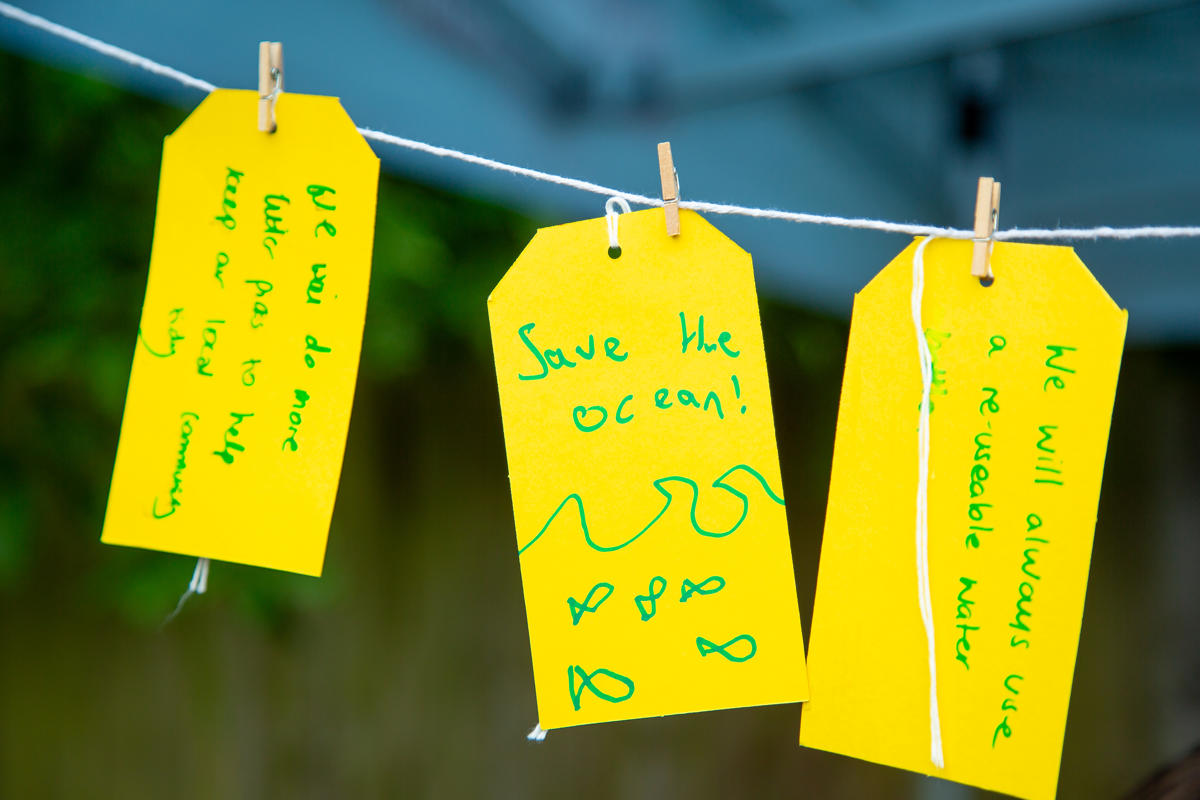 We wil do more
litter pics to
keep our local community
tidy
Save the
ocean!
We will always use
a re-useable water
bottle